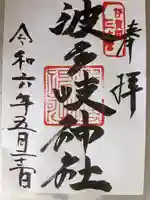 奉拝
波多岐神社
令和六年五月 日